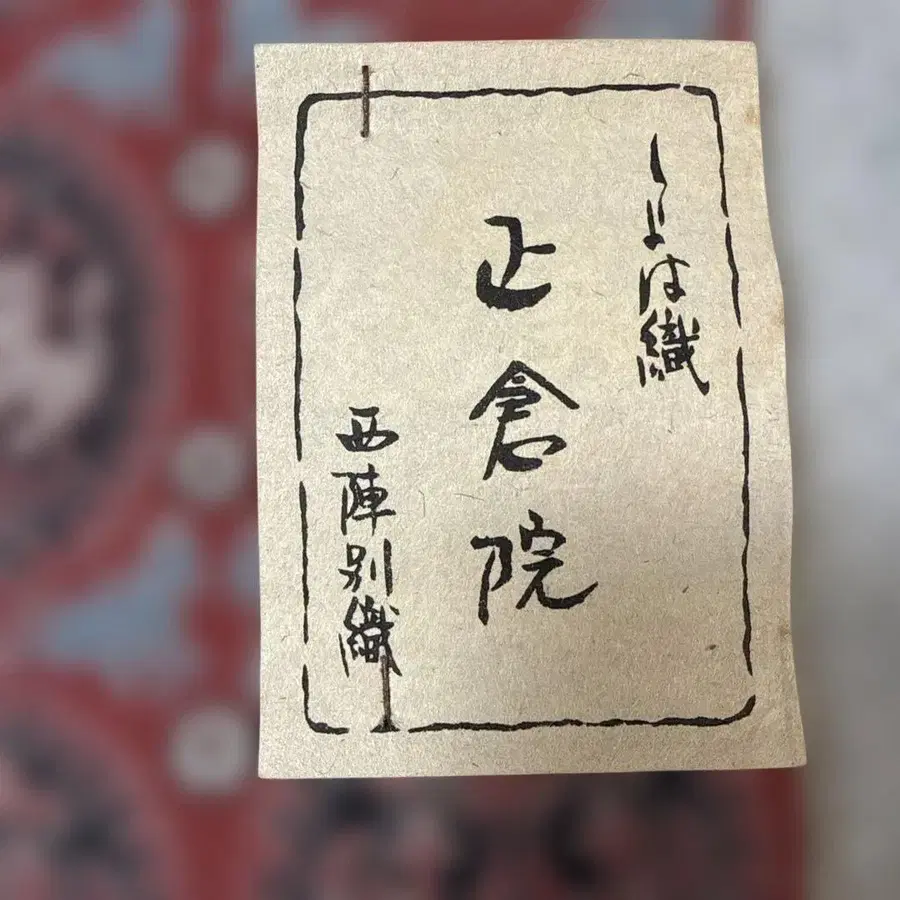 しよは織
正倉院
西陣別織